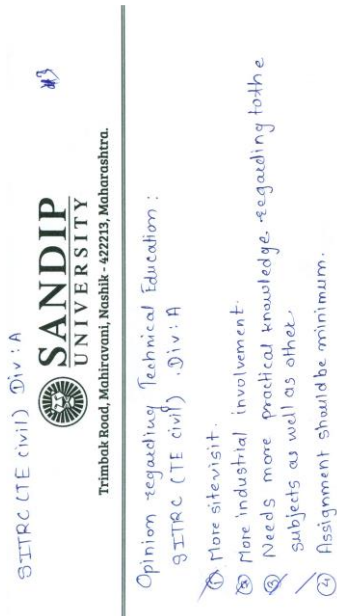 SITRC (TE civil) Div : A
#3
SANDIP
UNIVERSITY
Trimbak Road, Mahiravani, Nashik - 422213, Maharashtra.
Opinion regarding Technical Education :
SITRC (TE civil) . Div : A
① More site visit.
② More industrial involvement.
③ Needs more practical knowledge regarding to the
subjects as well as other.
④ Assignment should be minimum.